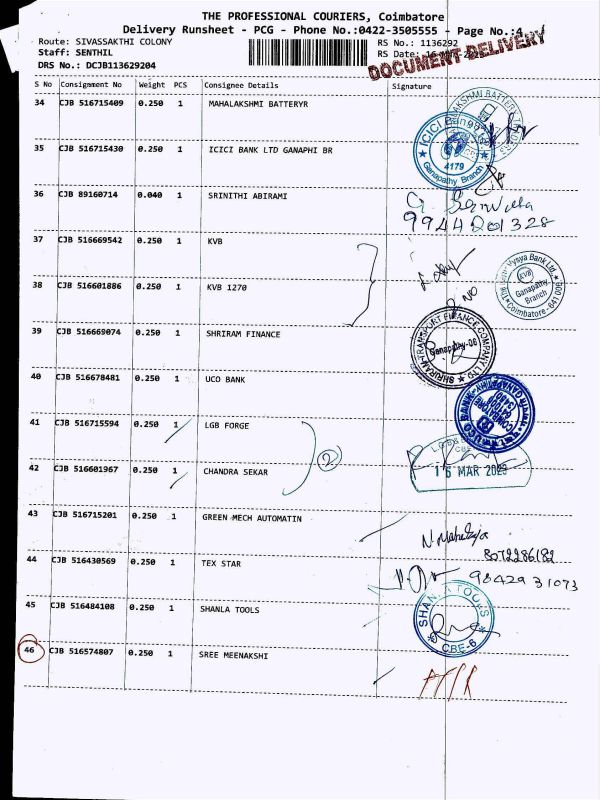 THE PROFESSIONAL COURIERS, Coimbatore
Delivery Runsheet - PCG - Phone No.:0422-3505555 - Page No.:4
Route: SIVASSAKTHI COLONY RS No.: 1136292
Staff: SENTHIL RS Date:
DRS No.: DCJB113629204
DOCUMENT DELIVERY
S No Consignment No Weight PCS Consignee Details Signature
34 CJB 516715409 0.250 1 MAHALAKSHMI BATTERYR
35 CJB 516715430 0.250 1 ICICI BANK LTD GANAPHI BR
ICICI Bank
4179
Ganapathy Branch
36 CJB 89160714 0.040 1 SRINITHI ABIRAMI
9944201328
37 CJB 516669542 0.250 1 KVB
Vysya Bank Ltd.
KVB
Ganapathy
Branch
Coimbatore-641 006
38 CJB 516601886 0.250 1 KVB 1270
39 CJB 516669074 0.250 1 SHRIRAM FINANCE
SHRIRAM TRANSPORT FINANCE COMPANY LTD
Ganapathy-06
40 CJB 516678481 0.250 1 UCO BANK
UCO BANK
41 CJB 516715594 0.250 1 LGB FORGE
2
42 CJB 516601967 0.250 1 CHANDRA SEKAR
15 MAR 2023
43 CJB 516715201 0.250 1 GREEN MECH AUTOMATIN
8072286182
44 CJB 516430569 0.250 1 TEX STAR
9842931073
45 CJB 516484108 0.250 1 SHANLA TOOLS
CBE-6
46 CJB 516574807 0.250 1 SREE MEENAKSHI